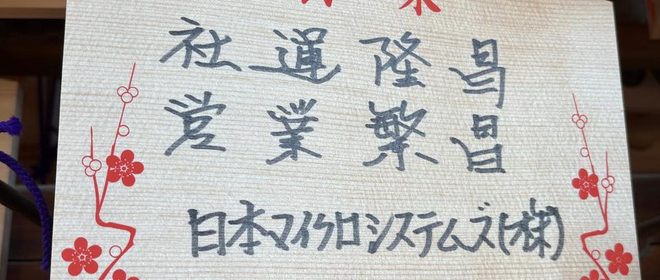 社運隆昌
営業繁昌
日本マイクロシステムズ(株)